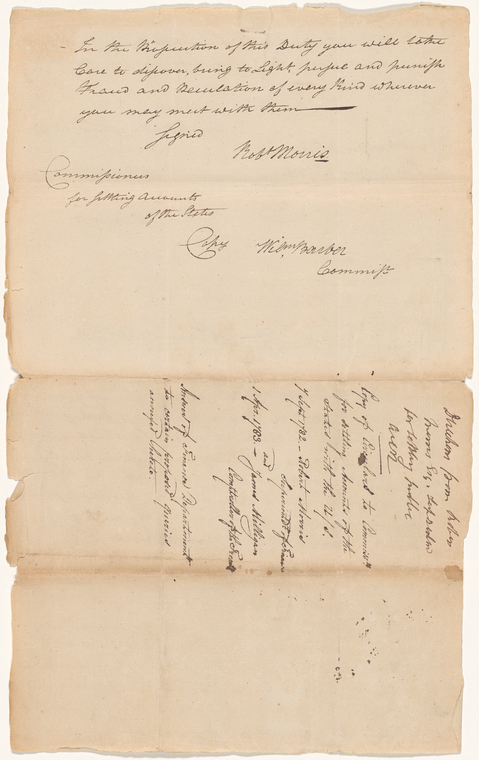 In the Prosecution of this Duty you will take
Care to discover, bring to Light, pursue and punish
Fraud and Peculation of every Kind wherever
you may meet with them
Signed
Robt Morris
Commissioners
for settling Accounts
of the States
Copy Wm Barber
Commissr
Direction from Robert
Morris Esq.
for settling public
Copy of Circulars to Commissrs
for settling Accounts of the
States with the U.S.
7 Sept 1782 - Robert Morris
Superintdt of Finan
and
1 Apr. 1783 - James Milligan
Comptroller of the Treasy
Answers of Treasury Department
to certain proposed Queries